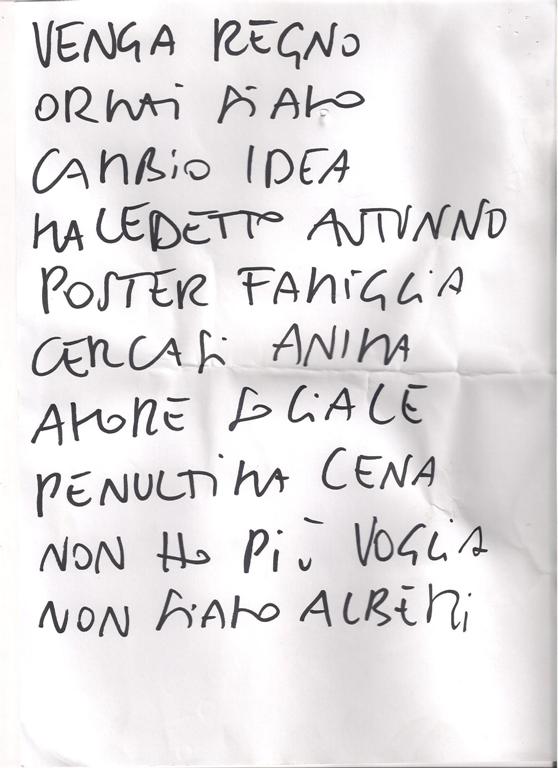 VENGA REGNO
ORMAI SIAMO
CAMBIO IDEA
MALEDETTO AUTUNNO
POSTER FAMIGLIA
CERCASI ANIMA
AMORE SOCIALE
PENULTIMA CENA
NON HO PIÙ VOGLIA
NON SIAMO ALBERI